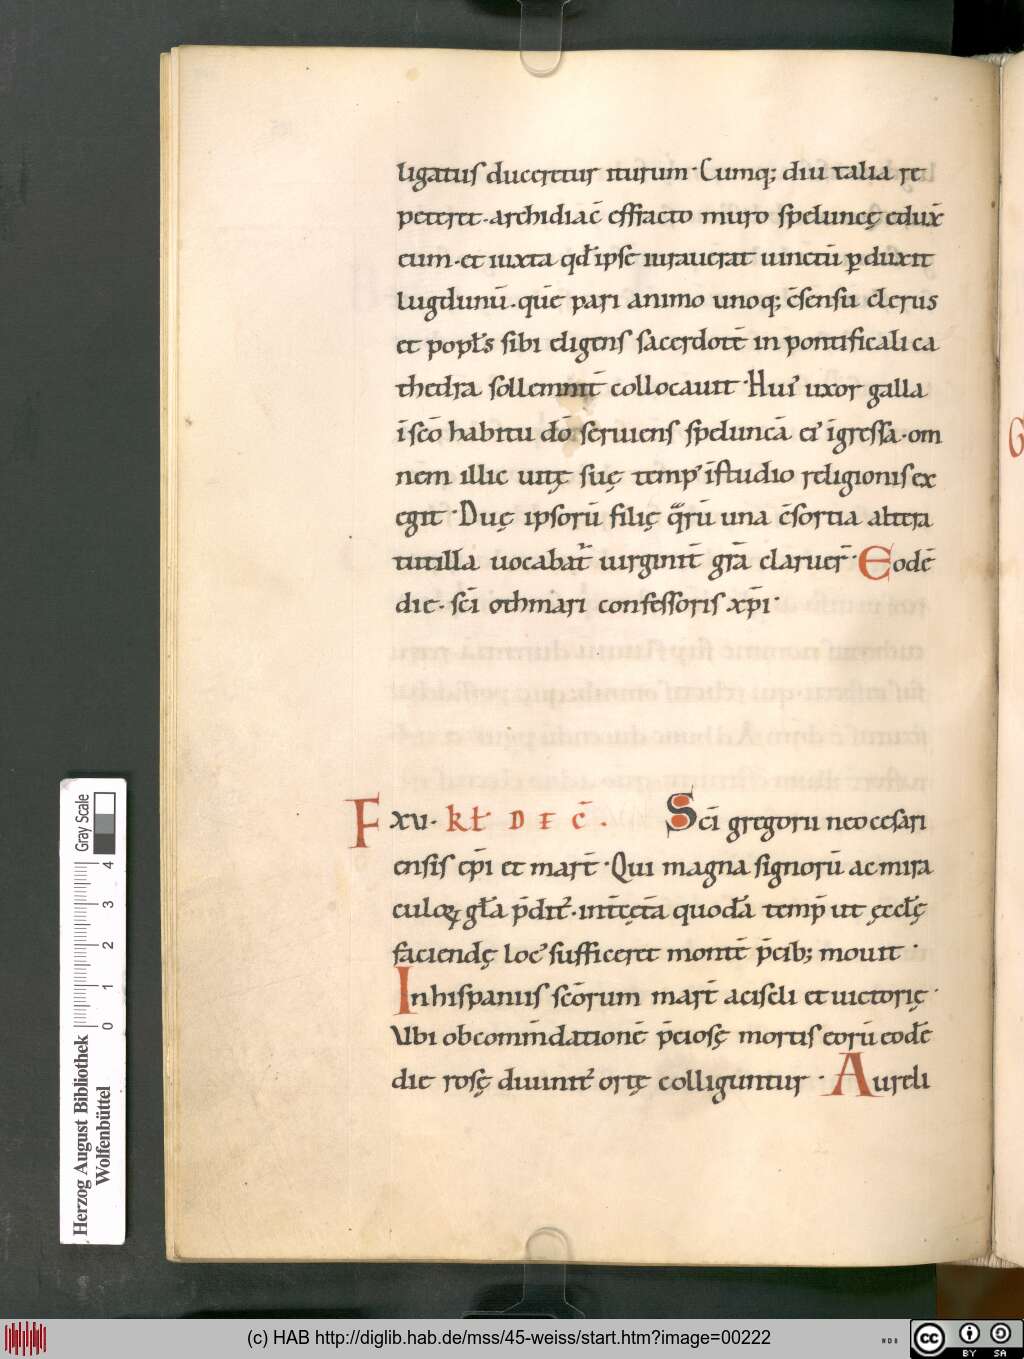 ligatus duceretur iturum· Cumq; diu talia re
peteret· archidiac̄ effracto muro speluncę edux̄
eum· et iuxta qđ ipse iurauerat uinctū ꝑduxit
lugdunū· quē pari animo unoq; c̄sensu clerus
et popl̄s sibi eligens sacerdotē in pontificali ca
thedra sollemnit̄ collocauit· Hui᾽ uxor galla
ī sc̄o habitu dō seruiens speluncā ei᾽ īgressa· om
nem illic uitę suę temp᾽ ī studio religionis ex
egit· Duę ipsorū filię q̄rū una c̄sortia altera
tutilla uocabat᷑ uirginit̄ grā̄ claruer̄· Eodē
die· sc̄i othmari confessoris xp̄i·
F xv· kł D E C̄·
Sc̄i gregorii neocesari
ensis ep̄i et mart̄· Qui magna signorū ac mira
culoꝝ gl̄a p̄dit᾽· int̄ cęt̄a quodā temp̄ ut ęccl̄ę
faciendę loc᾽ sufficeret montē p̄cib; mouit·
In hispaniis sc̄orum mart̄ aciscli et uictorię·
Vbi ob com̄dationē p̄ciosę mortis eorū eodē
die rosę diuinit᾽ ortę colliguntur· Aureli
G
Gray Scale
4
3
2
1
0
Herzog August Bibliothek
Wolfenbüttel
(c) HAB http://diglib.hab.de/mss/45-weiss/start.htm?image=00222
WDB
cc
BY SA